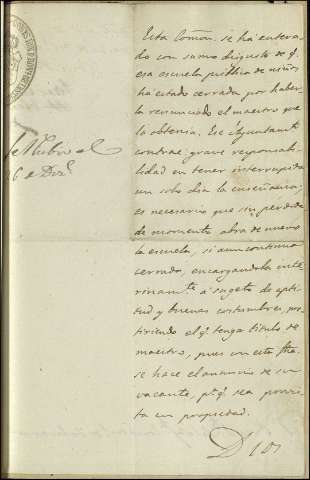 Esta Comon. se há entera-
do con sumo disgusto de q.
esa escuela pública de niños
ha estado cerrada por haber-
la renunciado el maestro que
la obtenia. Ese Ayuntamto
contrae grave responsabi-
lidad en tener interrumpida
un solo dia la enseñanza;
es necesario que sin perdida
de momento abra de nuevo
la escuela, si aun continua
cerrada, encargandola inte-
rinamte. á sugeto de apti-
tud y buenas costumbres, pre-
firiendo el q. tenga titulo de
maestro, pues en esta fha.
se hace el anuncio de su
vacante, pa. q. sea provis-
ta en propiedad.
Dios